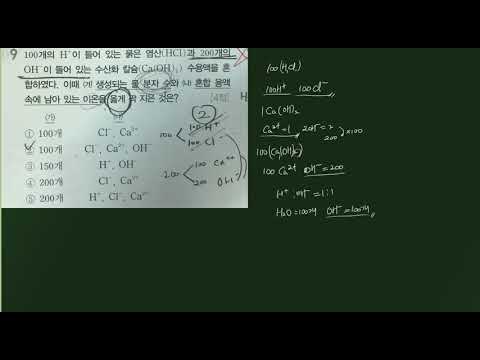 9 100개의 H⁺이 들어 있는 묽은 염산(HCl)과 200개의
OH⁻이 들어 있는 수산화 칼슘(Ca(OH)₂) 수용액을 혼
합하였다. 이때 (가) 생성되는 물 분자 수와 (나) 혼합 용액
속에 남아 있는 이온을 옳게 짝 지은 것은? [4점]
(가) (나)
① 100개 Cl⁻, Ca²⁺
② 100개 Cl⁻, Ca²⁺, OH⁻
③ 150개 H⁺, OH⁻
④ 200개 Cl⁻, Ca²⁺
⑤ 200개 H⁺, Cl⁻, Ca²⁺
2
100
100 H⁺
100 Cl⁻
200
100 Ca²⁺
200 OH⁻
100(HCl)
100H⁺ 100Cl⁻
1 Ca(OH)₂
Ca²⁺=1, 2OH⁻=2
200 ×100
100(Ca(OH)₂)
100 Ca²⁺ OH⁻=200
H⁺ : OH⁻ = 1:1
H₂O=100개 OH⁻=100개